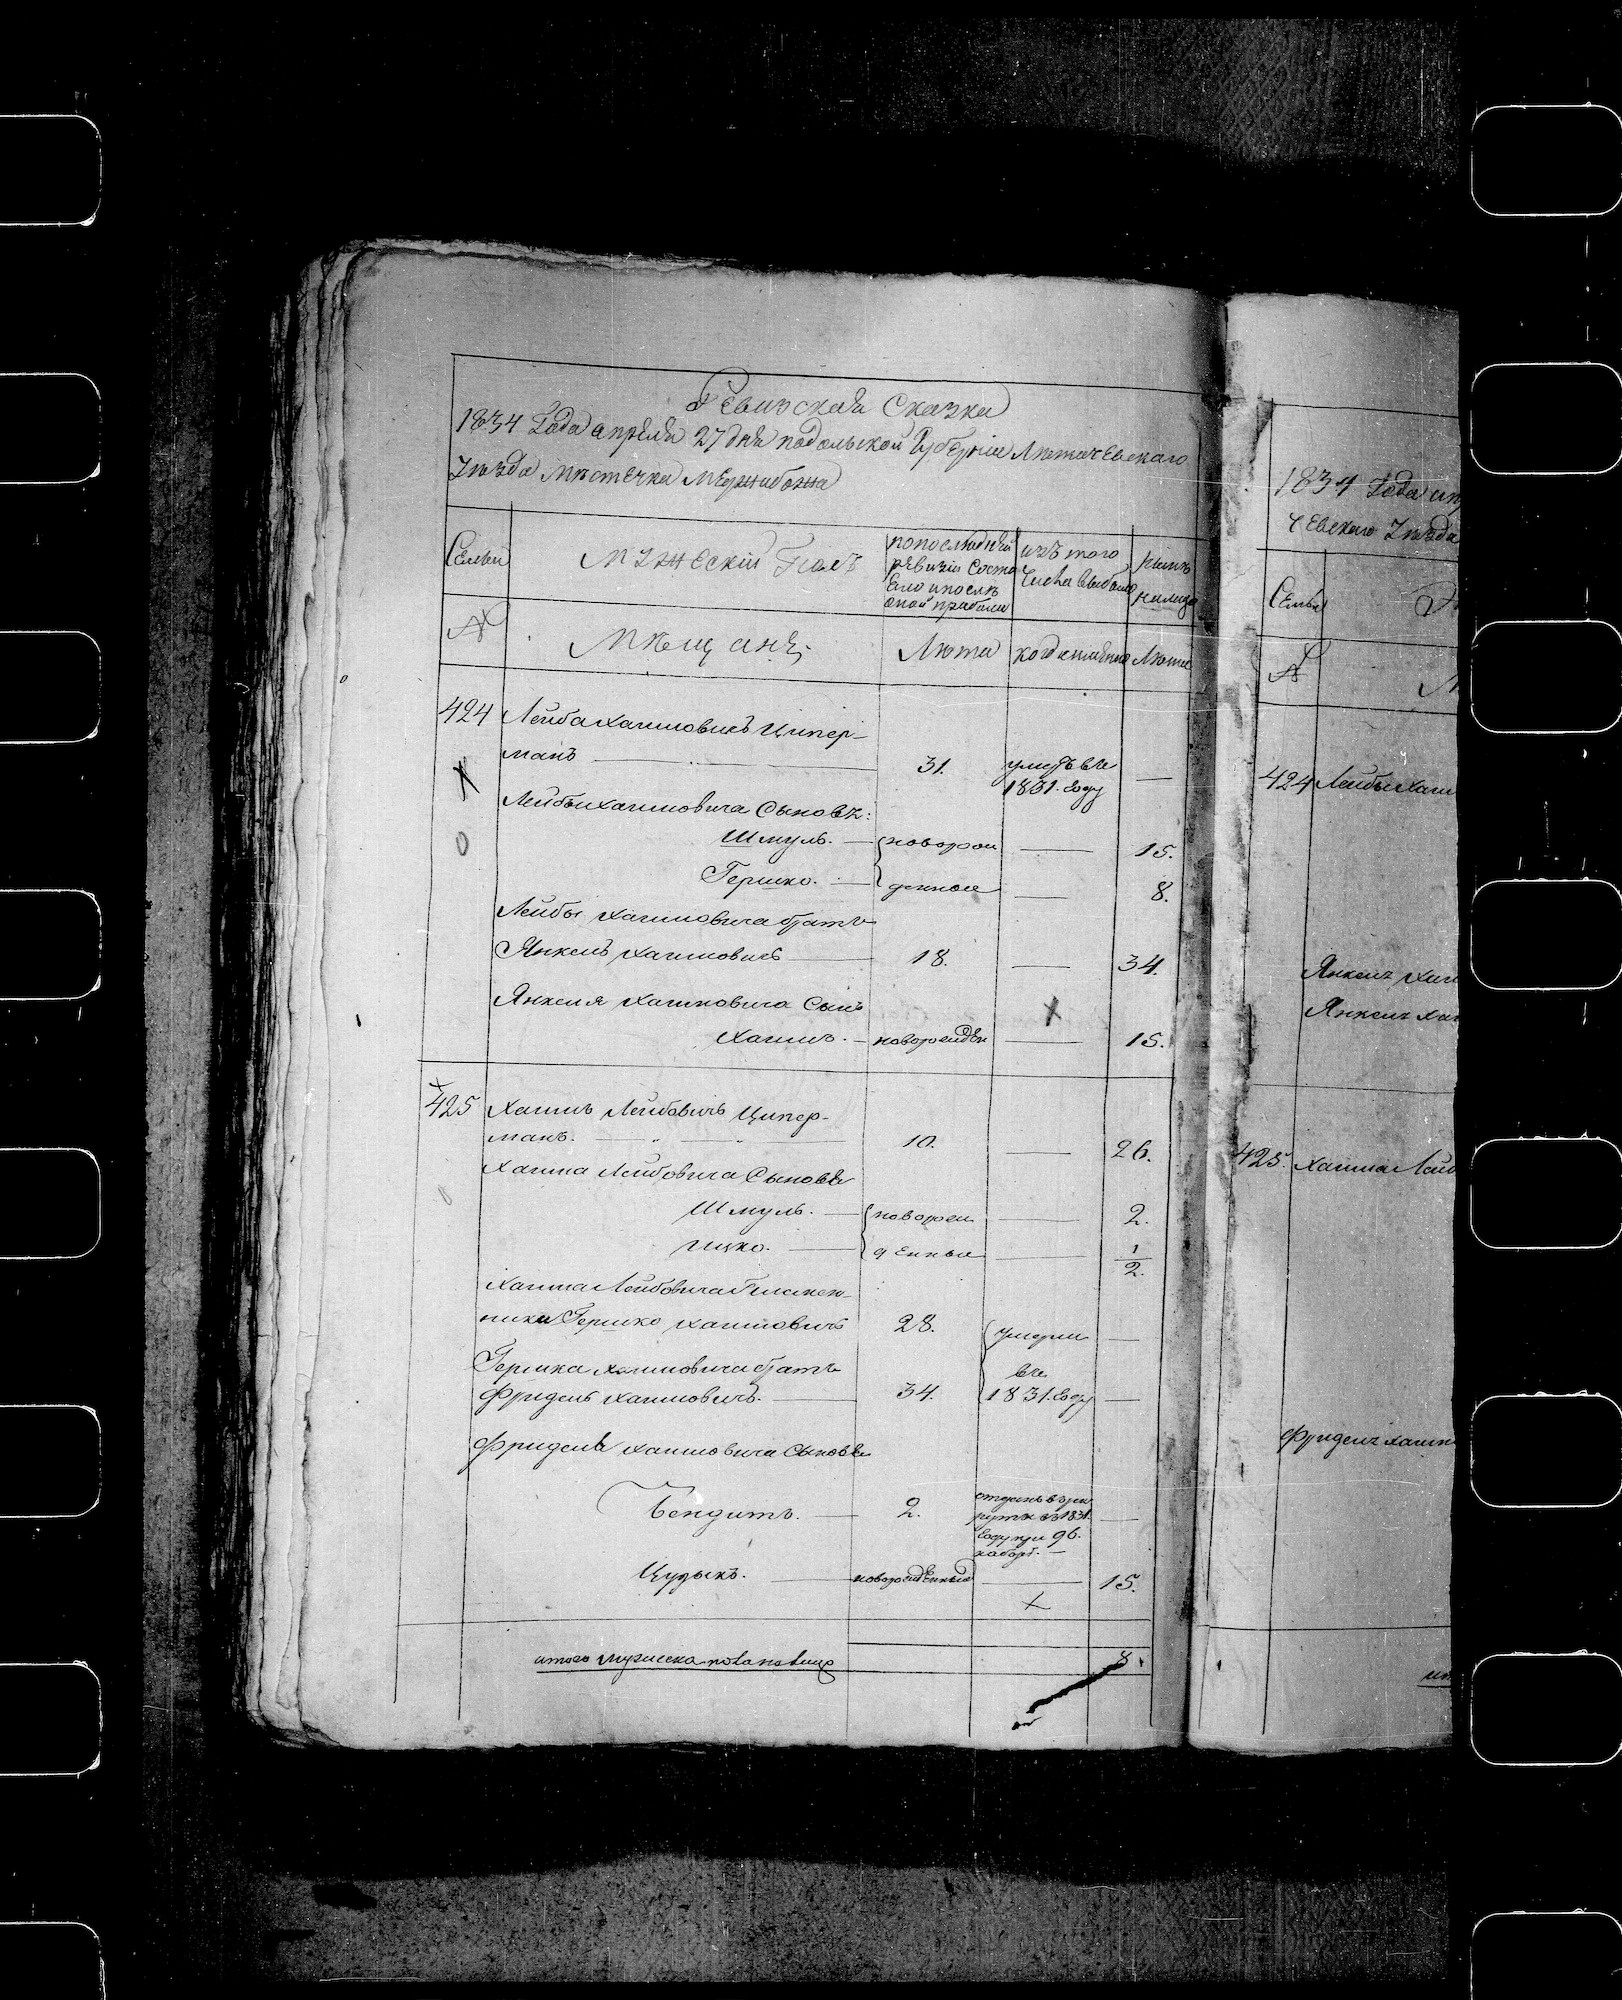 Ревизская Сказка
1834 Года апреля 27 дня подольской Губернии Лютичевскаго
Уезда Местечка Меджибожа
Семьи
Мужескій Полъ
По последней
ревизіи состо
яло и после
оной прибыло
изъ того
Числа выбыло
ныне
на лицо
№
Мещане;
Лета
когда именно
Лета
424
Лейба Хаимовичъ Ципер-
манъ
31.
умеръ въ
1831. Году
Лейбы Хаимовича Сыновъя:
Шмуль.
новорож
15.
Гершко.
денные
8.
Лейбы Хаимовича братъ
Янкель Хаимовичъ
18.
34.
Янкеля Хаимовича Сынъ
Хаимъ.
новорожден
15.
425
Хаимъ Лейбовичъ Ципер-
манъ.
10.
26.
Хаима Лейбовича Сыновья
Шмуль.
новорож
2.
Ицко.
денные
1/2.
Хаима Лейбовича Племен-
ники Гершко Хаимовичъ
28.
умерли
Гершка Хаимовича братъ
въ
Фридель Хаимовичъ.
34.
1831. Году
Фриделя Хаимовича Сыновья
Бендитъ.
2.
отданъ в рек
руты в 1831
Году при 96.
наборе.
Цудыкъ.
новорожденный
15.
итого мужеска пола на лицо
8.
1834 Года ап
чевскаго Уезда
Семьи
№
424
Лейбы Хаим
Янкеля Хаи
Янкеля Хаи
425.
Хаима Лейб
Фриделя Хаим